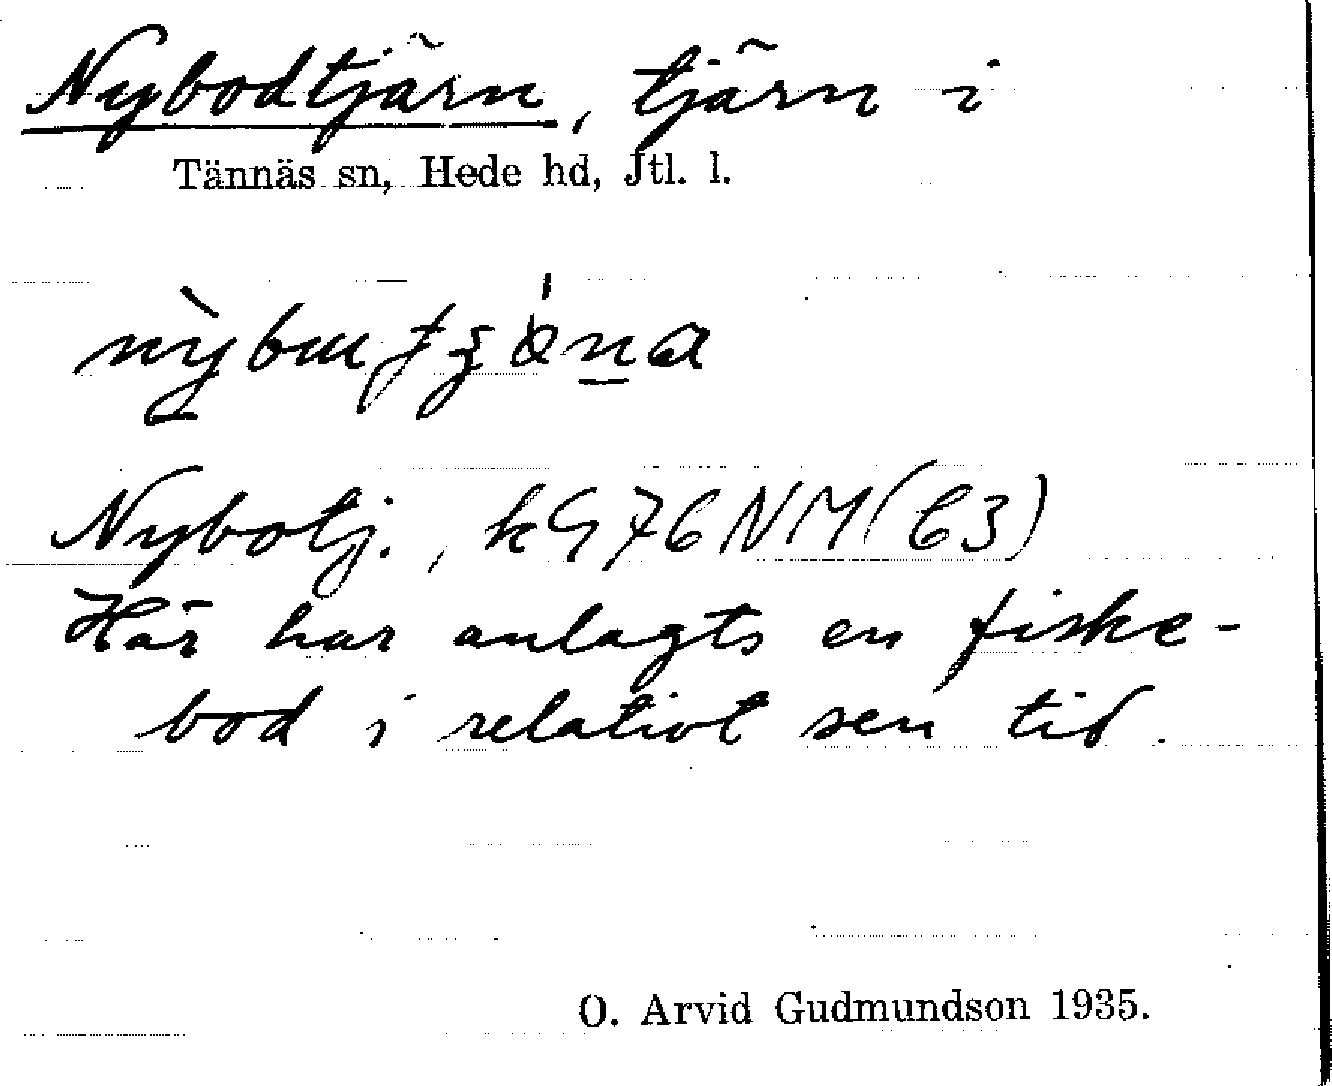 Nybodtjärn, tjärn i
Tännäs sn, Hede hd, Jtl. l.
Nybotj., kG76NM(63)
Här har anlagts en fiske-
bod i relativt sen tid.
O. Arvid Gudmundson 1935.